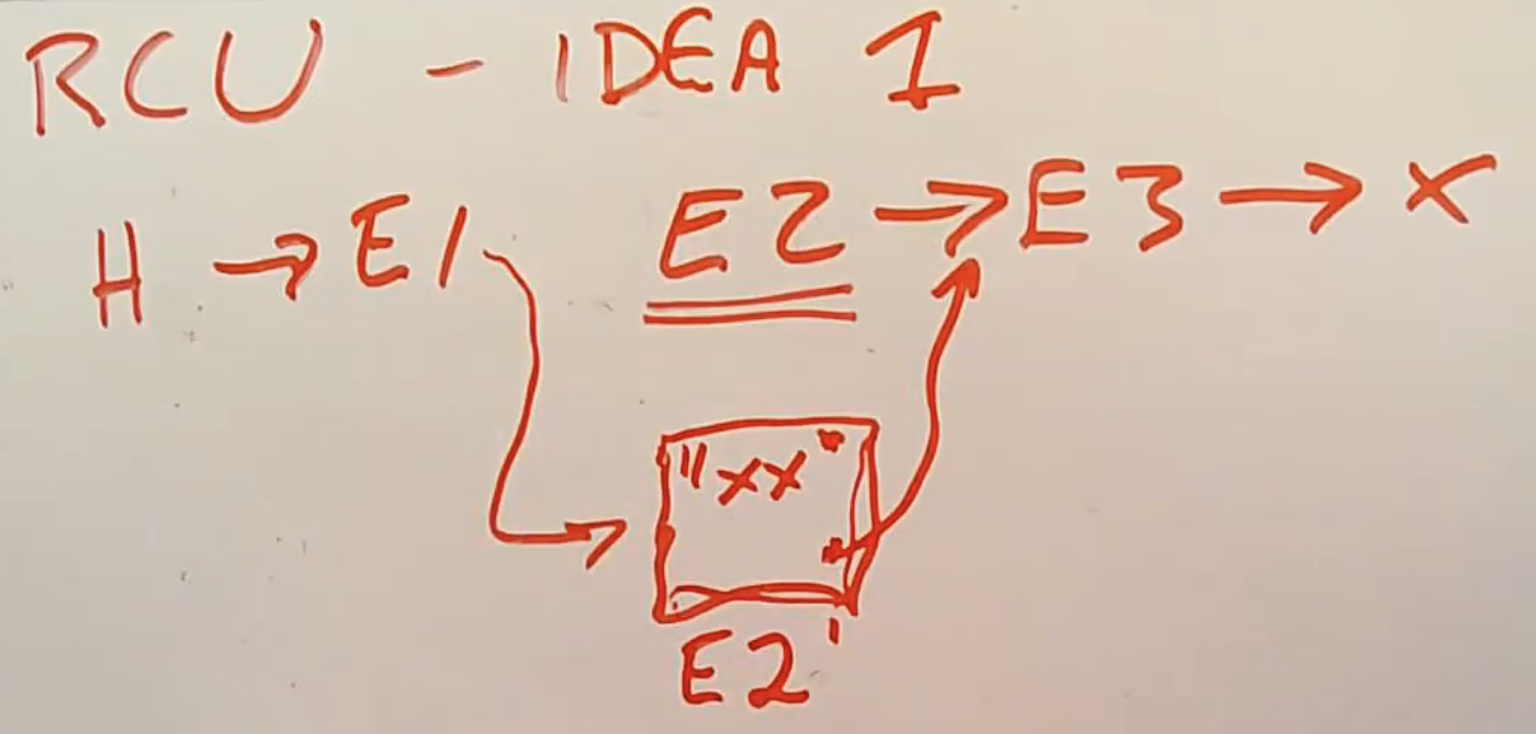 RCU - IDEA 1
H → E1 E2 → E3 → X
"XX"
E2'